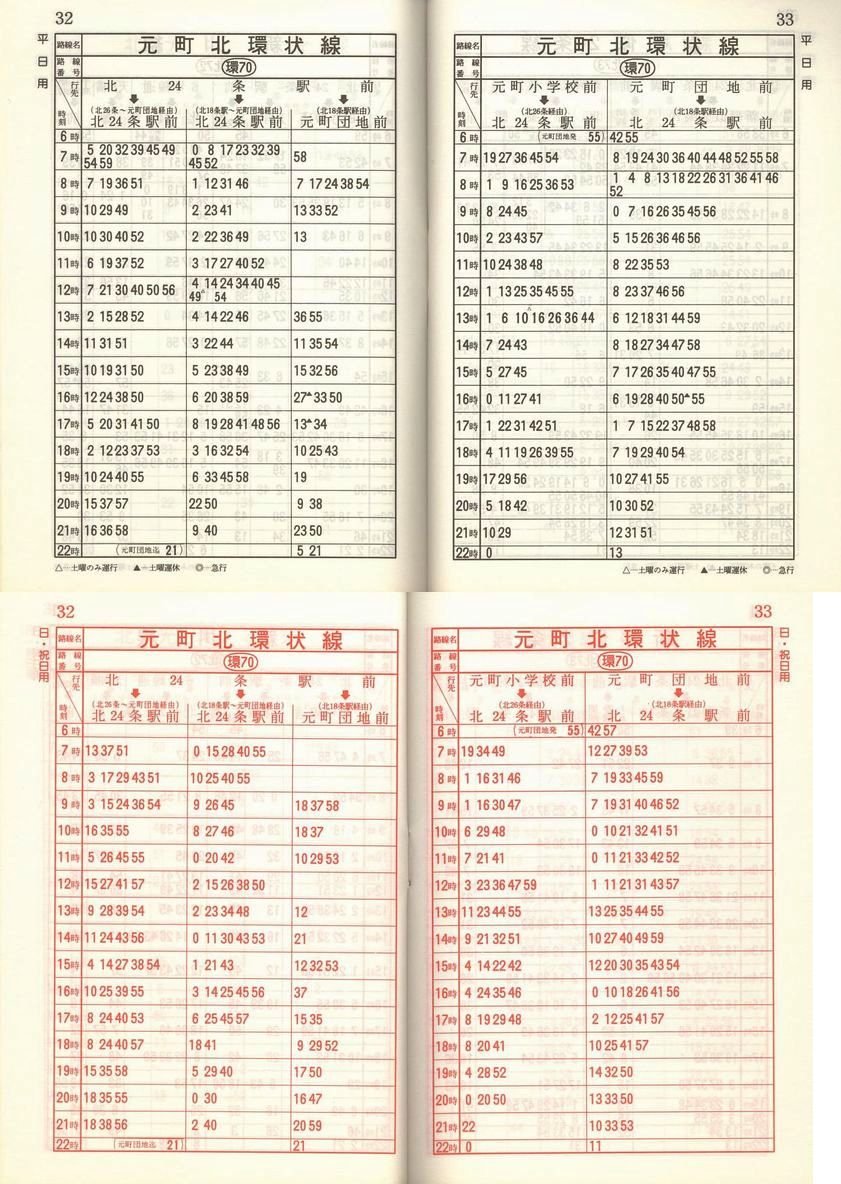 32
平日用
路線名 元町北環状線
路線番号 環70
行先 時刻
北24条駅前
(北26条〜元町団地経由) 北24条駅前
(北18条駅〜元町団地経由) 北24条駅前
(北18条駅経由) 元町団地前
6時
7時 5 20 32 39 45 49 54 59 0 8 17 23 32 39 45 52 58
8時 7 19 36 51 1 12 31 46 7 17 24 38 54
9時 10 29 49 2 23 41 13 33 52
10時 10 30 40 52 2 22 36 49 13
11時 6 19 37 52 3 17 27 40 52
12時 7 21 30 40 50 56 4 14 24 34 40 45 49△ 54
13時 2 15 28 52 4 14 22 46 36 55
14時 11 31 51 3 22 44 11 35 54
15時 10 19 31 50 5 23 38 49 15 32 56
16時 12 24 38 50 6 20 38 59 27▲ 33 50
17時 5 20 31 41 50 8 19 28 41 48 56 13▲ 34
18時 2 12 23 37 53 3 16 32 54 10 25 43
19時 10 24 40 55 6 33 45 58 19
20時 15 37 57 22 50 9 38
21時 16 36 58 9 40 23 50
22時 (元町団地迄 21) 5 21
△…土曜のみ運行 ▲…土曜運休 ◎…急行
33
平日用
路線名 元町北環状線
路線番号 環70
行先 時刻
元町小学校前 (北26条経由) 北24条駅前
元町団地前 (北18条駅経由) 北24条駅前
6時 (元町団地発 55) 42 55
7時 19 27 36 45 54 8 19 24 30 36 40 44 48 52 55 58
8時 1 9 16 25 36 53 1 4 8 13 18 22 26 31 36 41 46 52
9時 8 24 45 0 7 16 26 35 45 56
10時 2 23 43 57 5 15 26 36 46 56
11時 10 24 38 48 8 22 35 53
12時 1 13 25 35 45 55 8 23 37 46 56
13時 1 6 10△ 16 26 36 44 6 12 18 31 44 59
14時 7 24 43 8 18 27 34 47 58
15時 5 27 45 7 17 26 35 40 47 55
16時 0 11 27 41 6 19 28 40 50▲ 55
17時 1 22 31 42 51 1 7 15 22 37 48 58
18時 4 11 19 26 39 55 7 19 29 40 54
19時 17 29 56 10 27 41 55
20時 5 18 42 10 30 52
21時 10 29 12 31 51
22時 0 13
△…土曜のみ運行 ▲…土曜運休 ◎…急行
32
日・祝日用
路線名 元町北環状線
路線番号 環70
行先 時刻
北24条駅前
(北26条〜元町団地経由) 北24条駅前
(北18条駅〜元町団地経由) 北24条駅前
(北18条駅経由) 元町団地前
6時
7時 13 37 51 0 15 28 40 55
8時 3 17 29 43 51 10 25 40 55
9時 3 15 24 36 54 9 26 45 18 37 58
10時 16 35 55 8 27 46 18 37
11時 5 26 45 55 0 20 42 10 29 53
12時 15 27 41 57 2 15 26 38 50
13時 9 28 39 54 2 23 34 48 12
14時 11 24 43 56 0 11 30 43 53 21
15時 4 14 27 38 54 1 21 43 12 32 53
16時 10 25 39 55 3 14 25 45 56 37
17時 8 24 40 53 6 25 45 57 15 35
18時 8 24 40 57 18 41 9 29 52
19時 15 35 58 5 29 40 17 50
20時 18 35 55 0 30 16 47
21時 18 38 56 2 40 20 59
22時 (元町団地迄 21) 21
33
日・祝日用
路線名 元町北環状線
路線番号 環70
行先 時刻
元町小学校前 (北26条経由) 北24条駅前
元町団地前 (北18条駅経由) 北24条駅前
6時 (元町団地発 55) 42 57
7時 19 34 49 12 27 39 53
8時 1 16 31 46 7 19 33 45 59
9時 1 16 30 47 7 19 31 40 46 52
10時 6 29 48 0 10 21 32 41 51
11時 7 21 41 0 11 21 33 42 52
12時 3 23 36 47 59 1 11 21 31 43 57
13時 11 23 44 55 13 25 35 44 55
14時 9 21 32 51 10 27 40 49 59
15時 4 14 22 42 12 20 30 35 43 54
16時 4 24 35 46 0 10 18 26 41 56
17時 8 19 29 48 2 12 25 41 57
18時 8 20 41 10 25 41 57
19時 4 28 52 14 32 50
20時 0 20 50 13 33 50
21時 22 10 33 53
22時 0 11